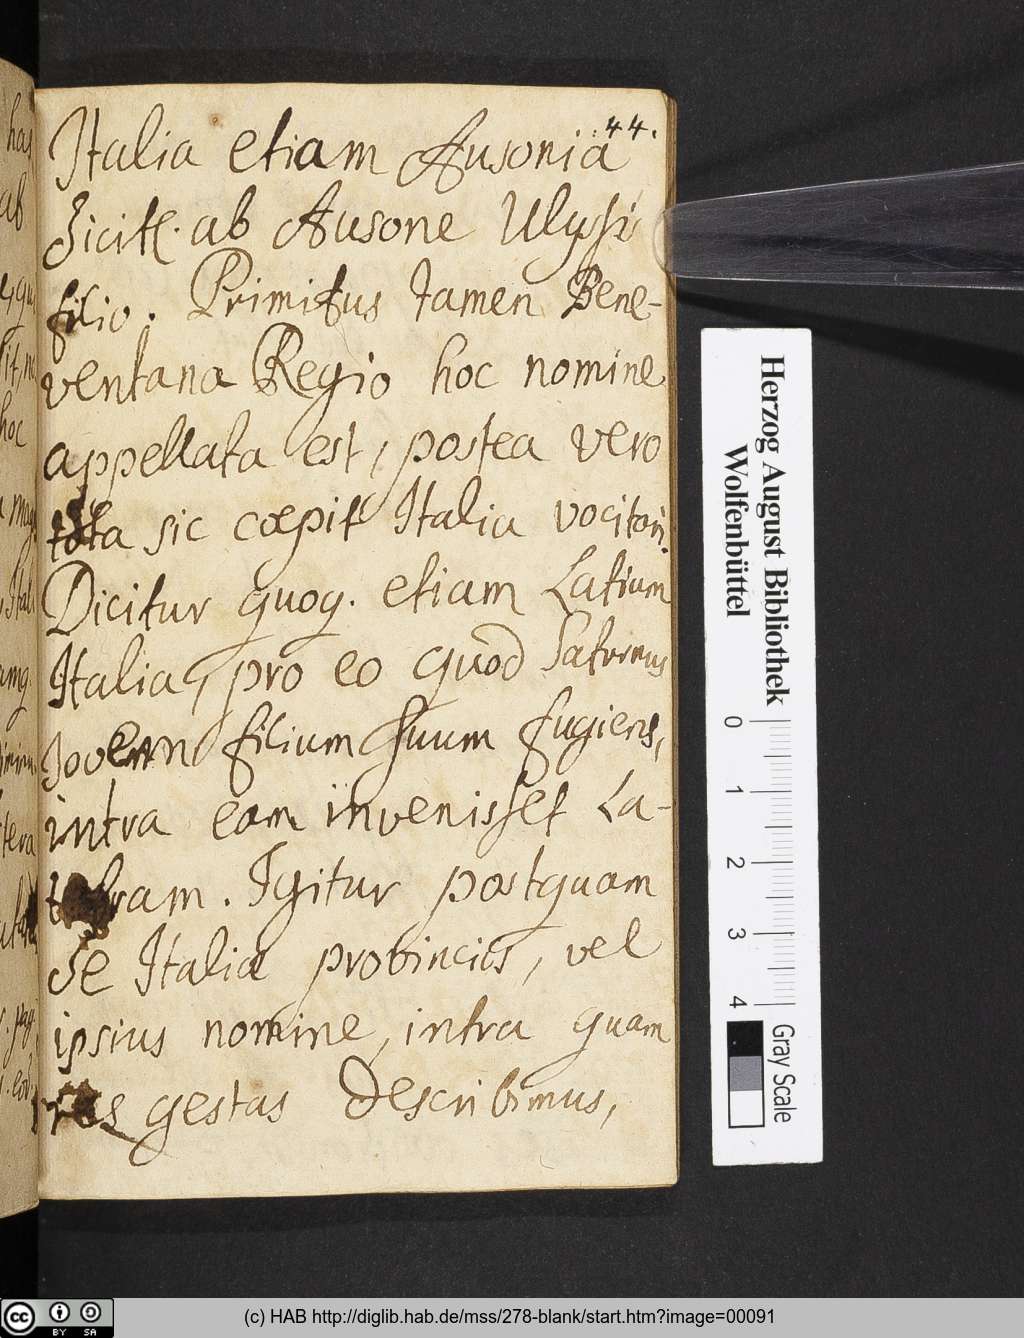 44.
Italia etiam Ausonia
dicitr. ab Ausone Ulyssis
filio. Primitus tamen Bene-
ventana Regio hoc nomine
appellata est, postea vero
tota sic cœpit Italia vocitari.
Dicitur quoq. etiam Latium
Italia, pro eo quòd Saturnus
Jovem filium suum fugiens,
intra eam invenisset La-
tebram. Igitur postquam
de Italia provincijs, vel
ipsius nomine, intra quam
res gestas describimus,
has
ab
hoc
Herzog August Bibliothek
Wolfenbüttel
0 1 2 3 4
Gray Scale
(c) HAB http://diglib.hab.de/mss/278-blank/start.htm?image=00091
cc BY SA